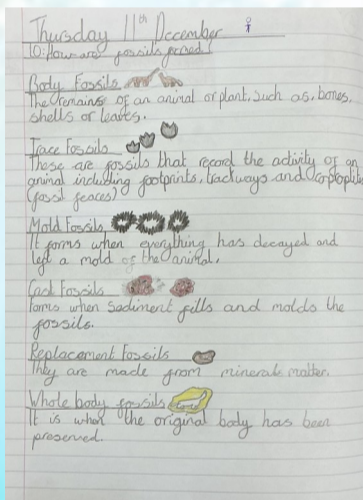 Thursday 11th December
LO: How are fossils formed
Body Fossils
The remains of an animal or plant, such as, bones,
shells or leaves.
Trace Fossils
These are fossils that record the activity of an
animal including footprints, trackways and coprolites
(fossil feaces)
Mold Fossils
It forms when everything has decayed and
left a mold of the animal.
Cast Fossils
Forms when sediment fills and molds the
fossils.
Replacement Fossils
They are made from minerals matter.
Whole body fossils
It is when the original body has been
preserved.